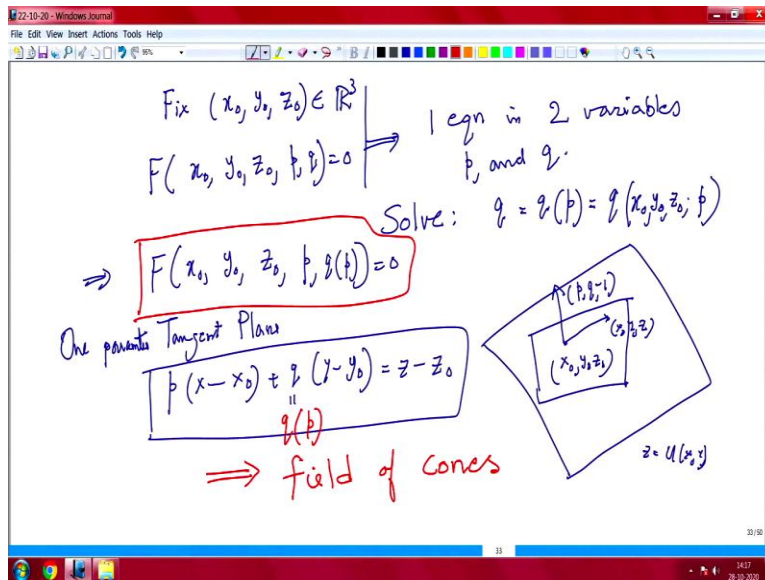 22-10-20 - Windows Journal
File Edit View Insert Actions Tools Help
96%
B I
Fix (x₀, y₀, z₀) ∈ ℝ³
F( x₀, y₀, z₀, p, q) = 0
⇒ 1 eqn in 2 variables
p, and q.
Solve: q = q(p) = q(x₀, y₀, z₀; p)
⇒ F(x₀, y₀, z₀, p, q(p)) = 0
One Tangent Plane
p (x - x₀) + q (y - y₀) = z - z₀
=
q(p)
⇒ field of cones
(p, q, -1)
(x₀, y₀ z₀)
z = u(x, y)
33/50
33
14:17
28-10-2020